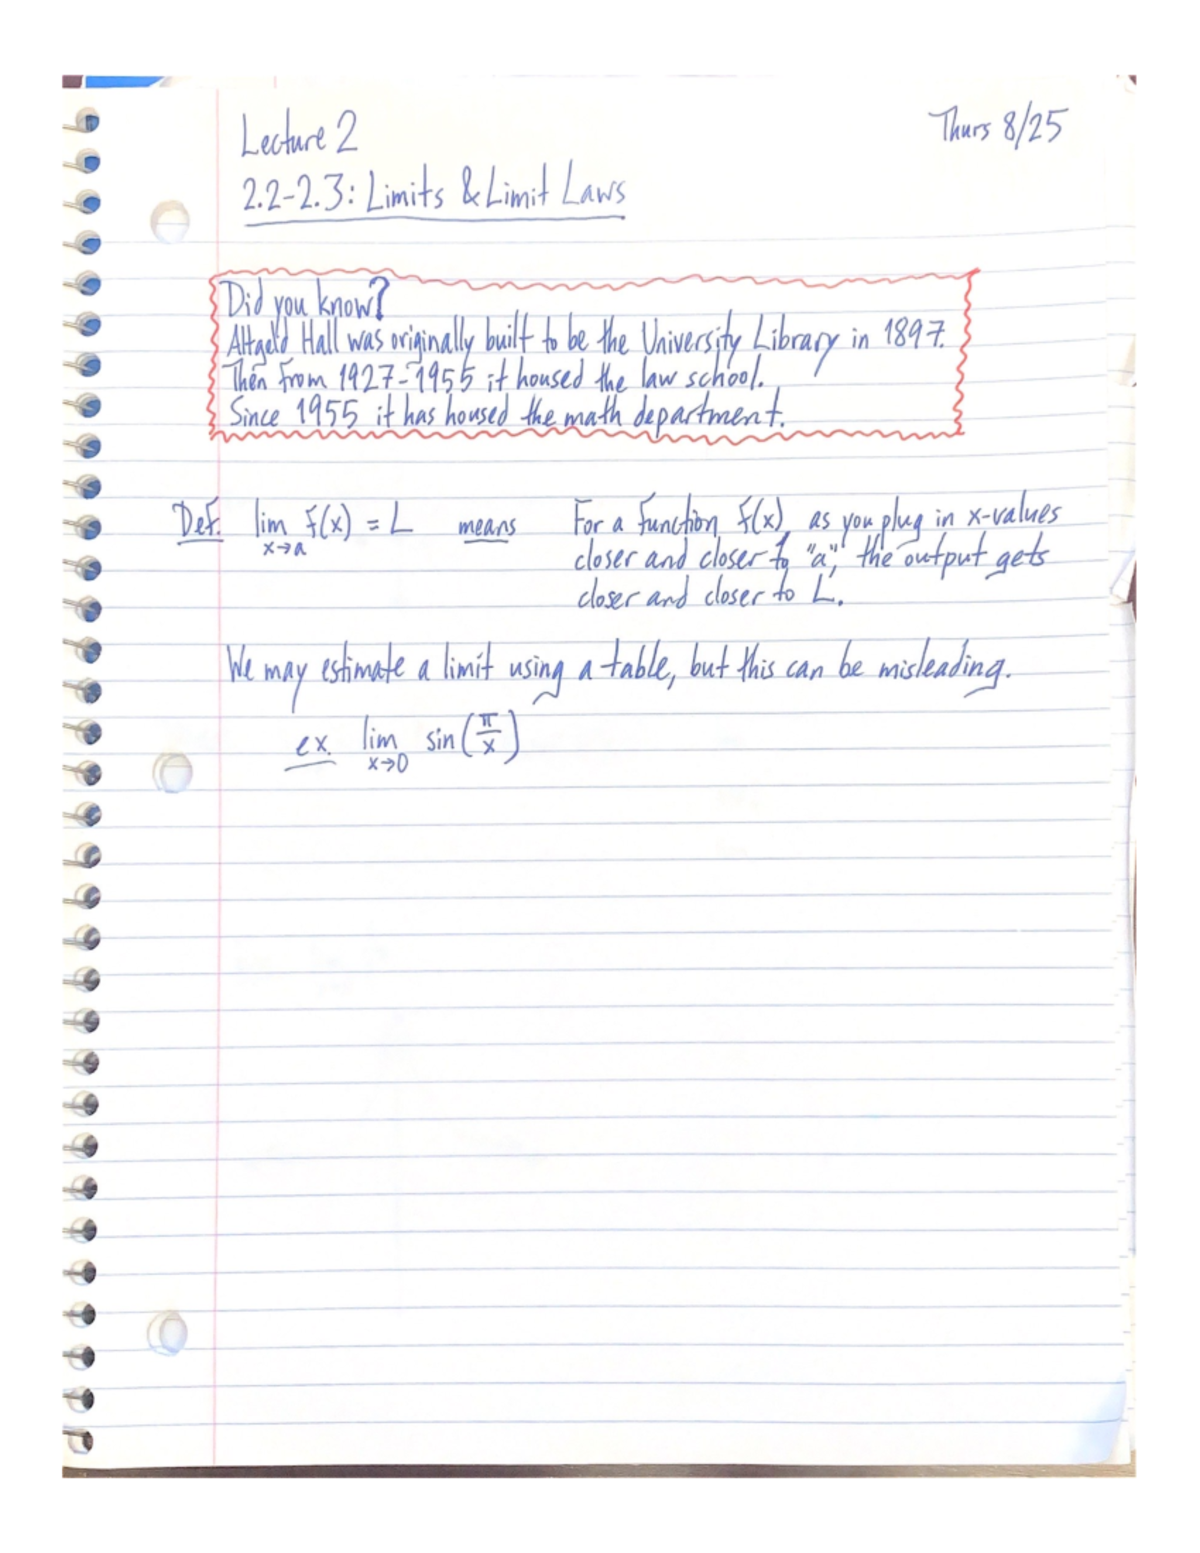 Lecture 2
Thurs 8/25
2.2-2.3: Limits & Limit Laws
Did you know?
Altgeld Hall was originally built to be the University Library in 1897.
Then from 1927-1955 it housed the law school.
Since 1955 it has housed the math department.
Def. lim x→a f(x) = L means For a function f(x), as you plug in x-values
closer and closer to "a", the output gets
closer and closer to L.
We may estimate a limit using a table, but this can be misleading.
ex. lim x→0 sin(π/x)